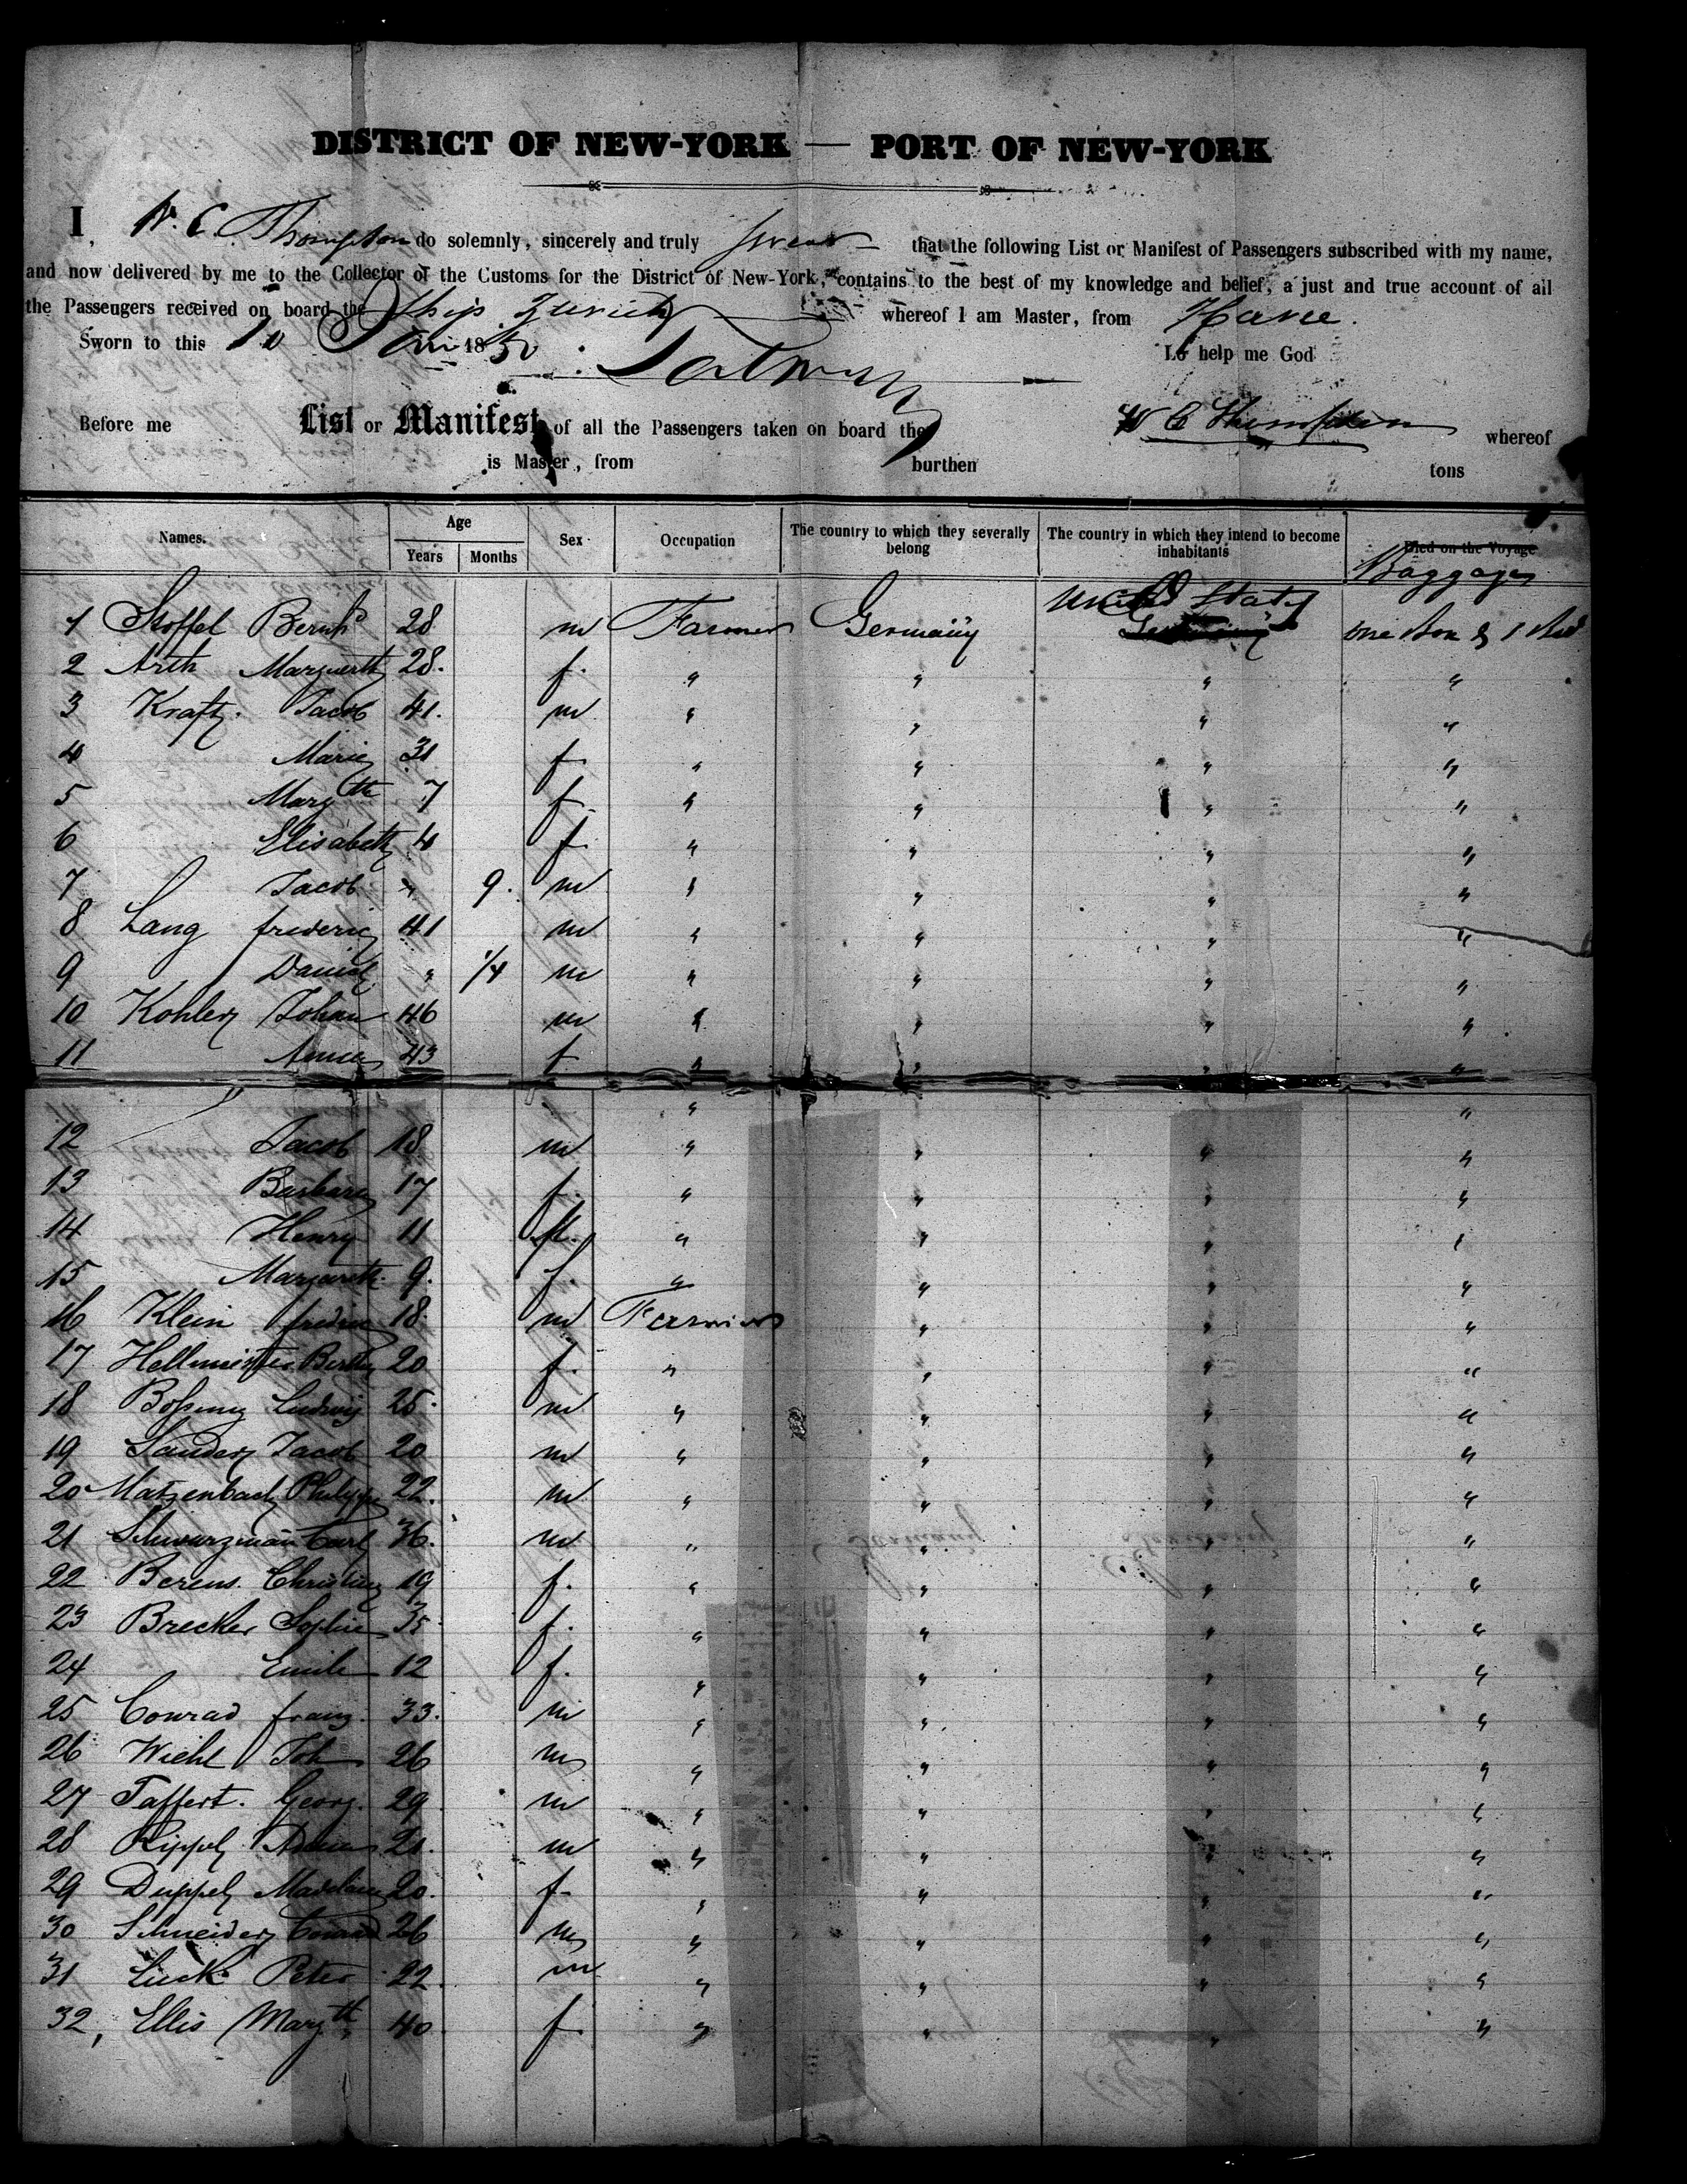 DISTRICT OF NEW-YORK — PORT OF NEW-YORK
I, W. C. Thompson do solemnly, sincerely and truly swear that the following List or Manifest of Passengers subscribed with my name,
and now delivered by me to the Collector of the Customs for the District of New-York, contains to the best of my knowledge and belief, a just and true account of all
the Passengers received on board the Ship Zurich whereof I am Master, from Havre.
Sworn to this 10 1850 So help me God
Before me List or Manifest of all the Passengers taken on board the W C Thompson whereof
is Master, from burthen tons
Names. Age Years Months Sex Occupation The country to which they severally belong The country in which they intend to become inhabitants Died on the Voyage Baggage
United States
1 Stoffel Bernhd 28 m Farmer Germany Germany one Box & 1 Bed
2 Arth Marguerth 28. f. " " " "
3 Kraft. Jacob 41. m " " " "
4 Marie 31 f " " " "
5 Margth 7 f. " " " "
6 Elisabeth 4 f. " " " "
7 Jacob " 9. m " " " "
8 Lang frederic 41 m " " " "
9 Daniel " 1/4 m " " " "
10 Kohler Johan 46 m " " " "
11 Anna 43 f " " " "
" "
12 Jacob 18 m " " " "
13 Barbara 17 f. " " " "
14 Henry 11 M. " " " "
15 Margareth. 9. f. " " " "
16 Klein fredric 18. m Farmer " " "
17 20 f. " " " "
18 Ludwig 25. m " " " "
19 Sander Jacob 20 m " " " "
20 Matzenbach Philippe 22. m " " " "
21 Schwarzman Carl 36. m " " " "
22 Berens. Christine 19 f. " " " "
23 Brecker Sophie 35 f. " " " "
24 Emile 12 f. " " " "
25 Conrad franz. 33. m " " " "
26 Wiehl Joh 26 m " " " "
27 Taffert. Georg. 29 m " " " "
28 Rippel 21. m " " " "
29 Duppel Madelaine 20. f- " " " "
30 Schneider Conrad 26 m " " " "
31 Luck Peter 22. m " " " "
32, Ellis Margth 40 f. " " " "